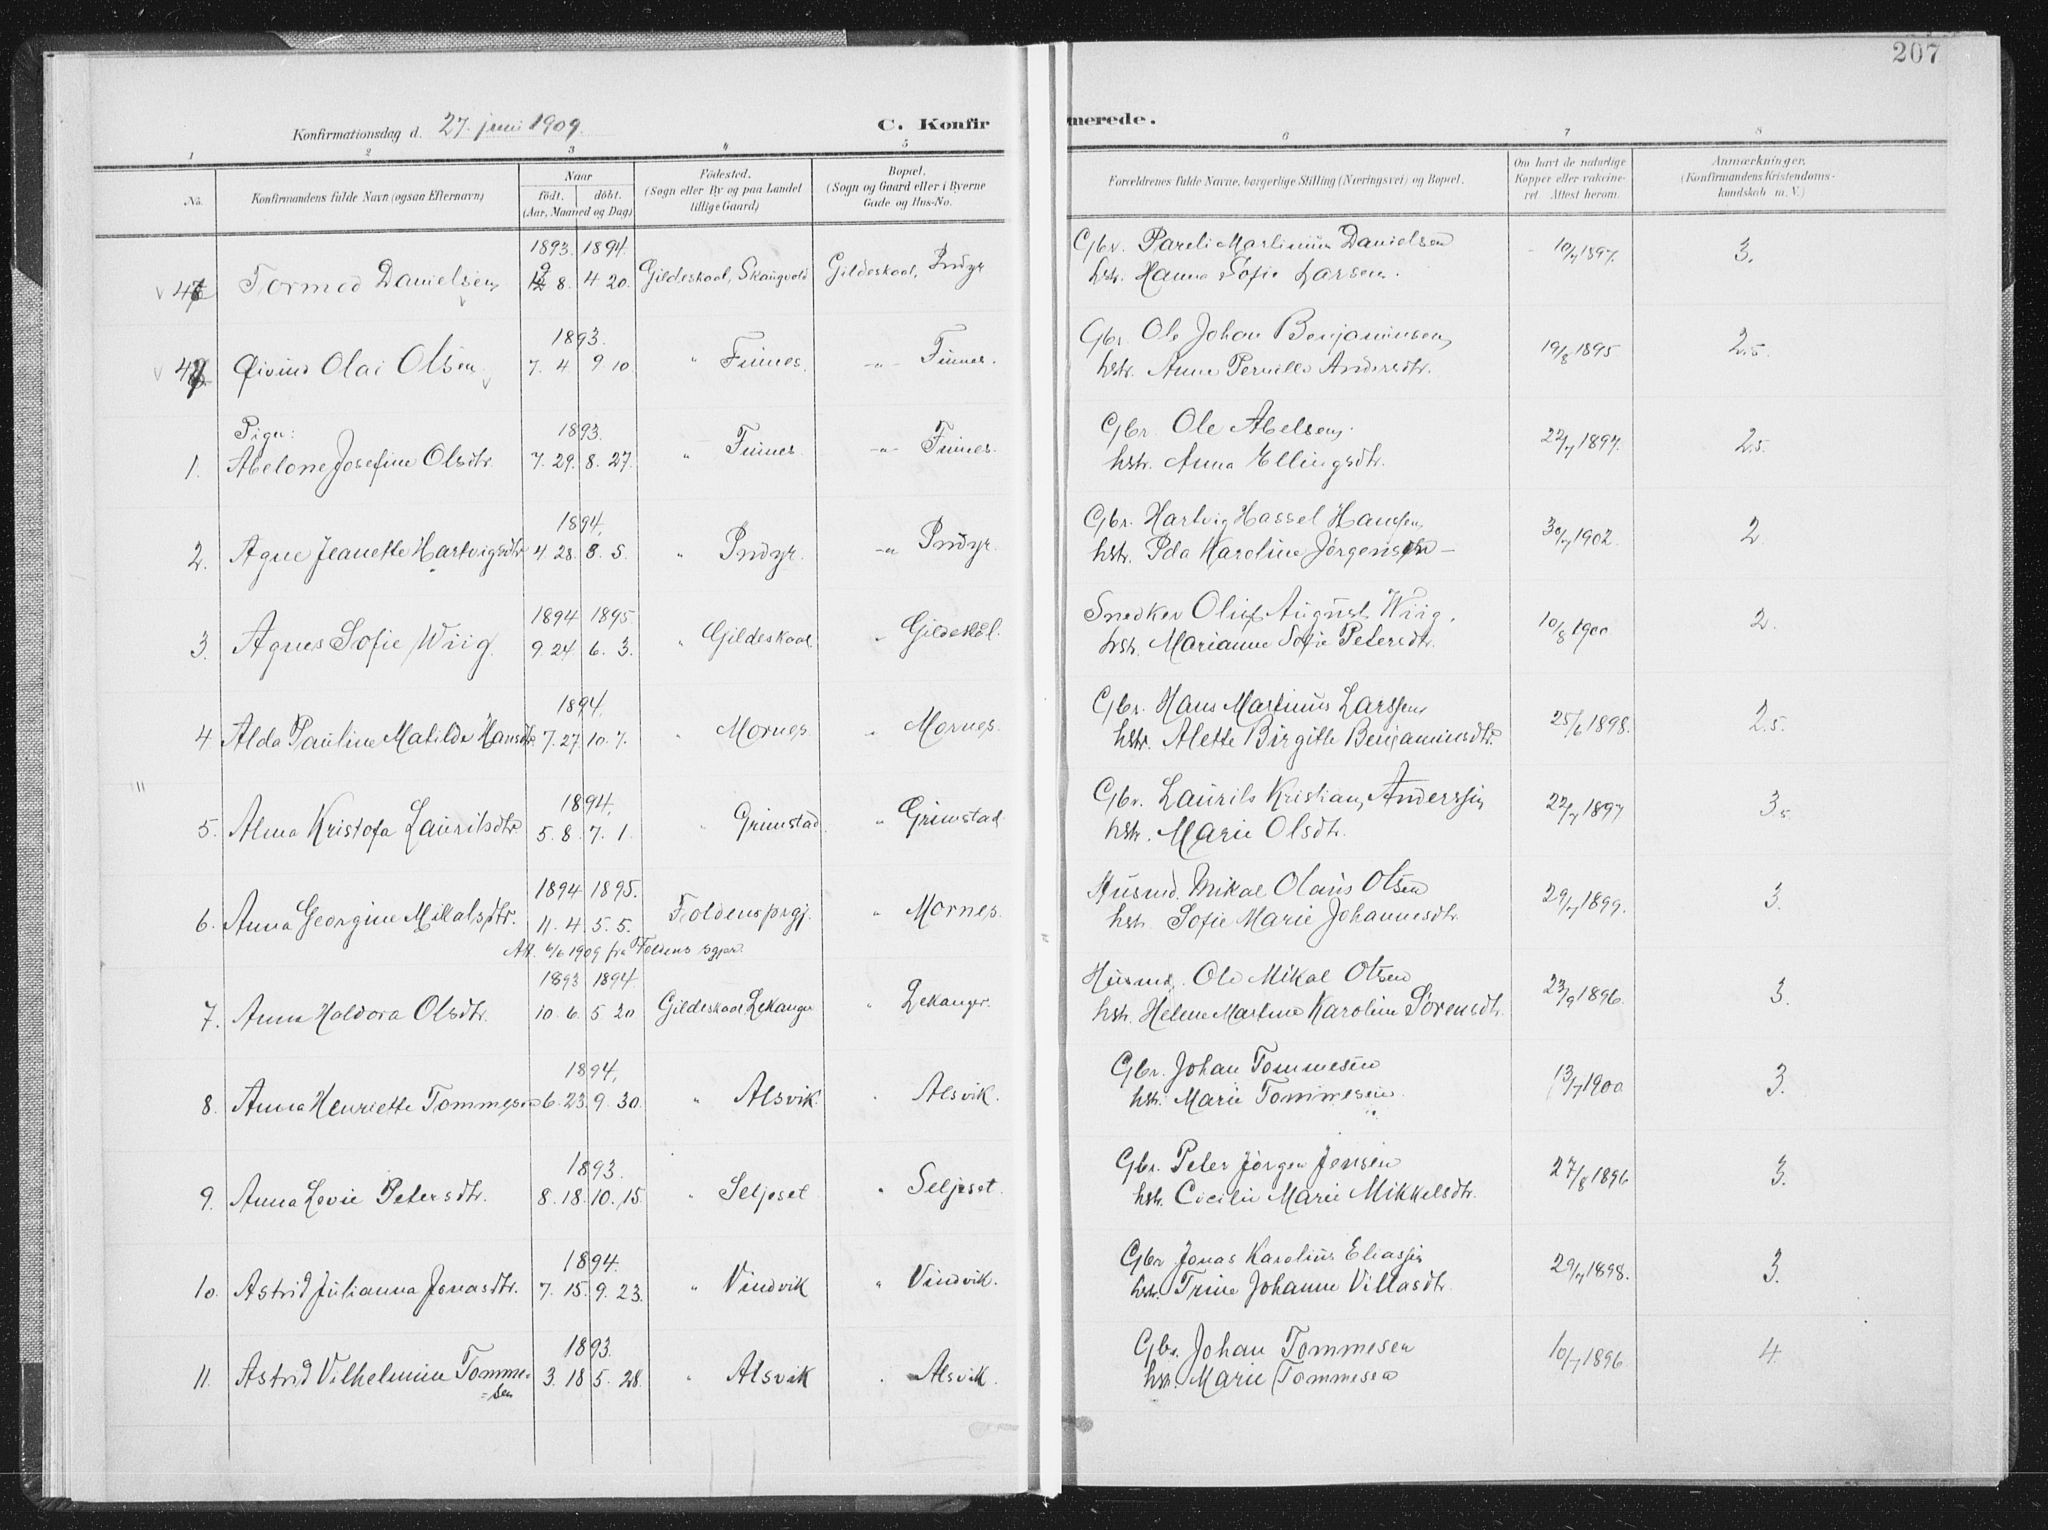 207
Konfirmationsdag d. 27. juni 1909. C. Konfirmerede.
1 2 3 4 5 6 7 8
No. Konfirmandens fulde Navn (ogsaa Efternavn) Naar födt. döbt. (Aar, Maaned og Dag) Födested. (Sogn eller By og paa Landet tillige Gaard) Bopæl. (Sogn og Gaard eller i Byerne Gade og Hus-No. Forældrenes fulde Navne, borgerlige Stilling (Næringsvei) og Bopæl. Om havt de naturlige Kopper eller vaccineret. Attest herom. Anmærkninger, (Konfirmandens Kristendomskundskab m. V.)
1893. 1894. Gbr. Pareli Martinius Danielsen
Tormod Danielsen 8. 4 20. Gildeskaal, Skaugvold Gildeskaal, Indyr hstr. Hanna Sofie Larsen. 10/7 1897. 3.
1893. Gbr Ole Johan Benjaminsen
Øivind Olai Olsen 7. 4 9 10 " Finnes. -"- Finnes. hstr. Anne Pernille Andersdtr. 19/8 1895 2.5.
Piger: 1893. Gbr. Ole Abelsen.
1. Abelone Josefine Olsdtr. 7. 29. 8. 27. " Finnes -"- Finnes. hstr. Anna Ellingsdtr. 22/7 1897. 2.5.
1894. Gbr. Hartvig Hassel Hanssen
2. Agne Jeanette Hartvigsdtr 4. 28. 8. 5. " Indyr. -"- Indyr. hstr. Ida Karoline Jørgensen 30/7 1902. 2
1894 1895. Snedker Oluf August Wiig.
3. Agnes Sofie Wiig. 9. 24 6. 3. " Gildeskaal " Gildeskål. hstr. Marianne Sofie Petersdtr. 10/8 1900 2.
1894. Gbr. Hans Martinus Larssen
4. Alda Pauline Matilde Hansdtr 7. 27. 10. 7. " Mornes. " Mornes. hstr. Alette Birgitte Benjaminsdtr. 25/6 1898. 2.5.
1894. Gbr. Laurits Kristian Anderssen
5. Alma Kristofa Lauritsdtr 5. 8. 7. 1. " Grimstad. " Grimstad hstr. Marie Olsdtr. 22/7 1897 3.
1894 1895. Husmd. Mikal Olaus Olsen
6. Anna Georgine Mikalsdtr. 11. 4. 5. 5. Foldens prgj. " Mornes. hstr. Sofie Marie Johannesdtr. 29/7 1899. 3.
Att. 6/6 1909 fra Foldens sgpr.
1893 1894. Husmd. Ole Mikal Olsen
7. Anna Haldora Olsdtr. 10. 6. 5. 20 Gildeskaal Lekanger " Lekanger. hstr. Helene Martine Karoline Sörensdtr. 23/9 1896. 3.
1894. Gbr. Johan Tommesen
8. Anna Henriette Tommesen 6. 23. 9. 30. " Alsvik. " Alsvik. hstr. Marie Tommesen. 13/7 1900 3.
1893. Gbr. Peter Jörgen Jensen
9. Anna Lovie Petersdtr. 8. 18. 10. 15. " Seljeset " Seljeset. hstr. Cecilie Marie Mikkelsdtr. 27/8 1896 3.
1894. Gbr Jonas Karolius Eliassen
10. Astrid Julianna Jonasdtr. 7. 15. 9. 23. " Vindvik " Vindvik. hstr. Trine Johanne Villasdtr. 29/7 1898. 3.
1893. Gbr. Johan Tommesen
11. Astrid Vilhelmine Tomme= 3. 18 5. 28. " Alsvik " Alsvik. hstr. Marie Tommesen 10/7 1896 4.
=sen